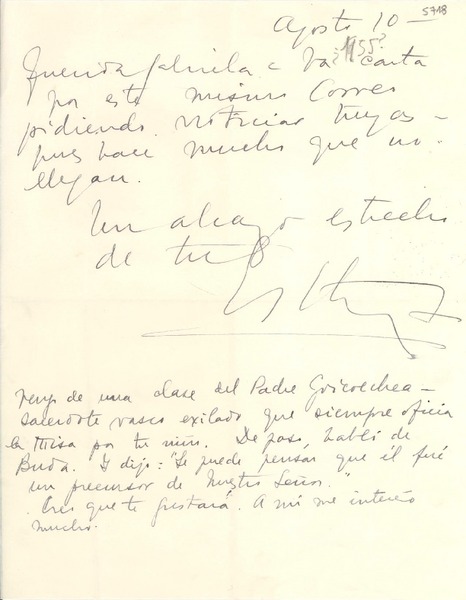 5718
Agosto 10 —
1955?
Querida Gabriela: Va carta
por este mismo Correo
pidiendo noticias tuyas —
pues hace mucho que no
llegan.
Un abrazo estrecho
de tu
Esther
Vengo de una clase del Padre Goicoechea —
sacerdote vasco exilado que siempre oficia
la Misa por tu niño. De paso, habló de
Buda. Y dijo: "Se puede pensar que él fué
un precursor de Nuestro Señor."
Creo que te gustará. A mí me interesó
mucho.